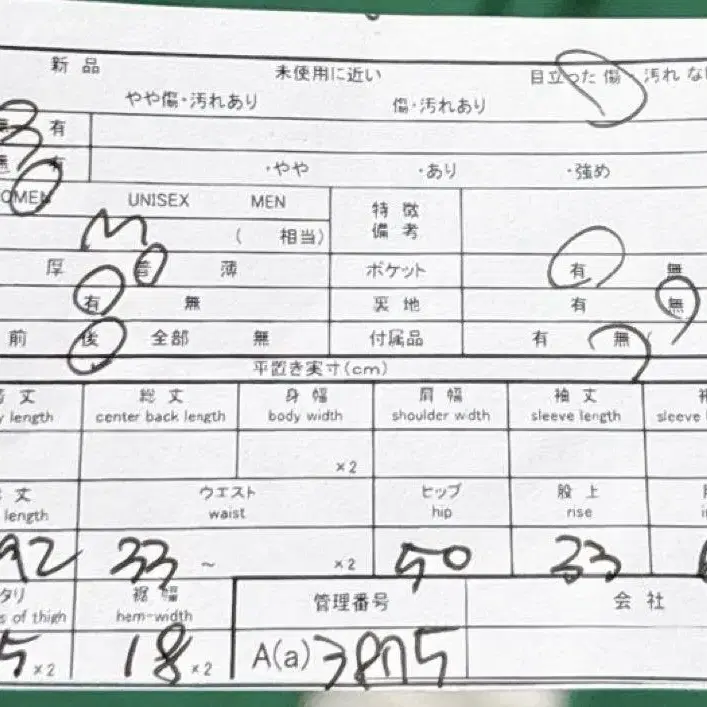 新品 未使用に近い 目立った傷・汚れな
やや傷・汚れあり 傷・汚れあり
無 有
有 ・やや ・あり ・強め
OMEN UNISEX MEN 特徴
M ( 相当) 備考
厚 普 薄 ポケット 有 無
有 無 裏地 有 無
前 後 全部 無 付属品 有 (無
平置き実寸(cm)
丈 総丈 身幅 肩幅 袖丈
length center back length body width shoulder width sleeve length sleeve
×2
丈 ウエスト ヒップ 股上
length waist hip rise
92 33 ~ ×2 50 33
タリ 裾幅 管理番号 会社
s of thigh hem-width
5 ×2 18 ×2 A(a) 3875